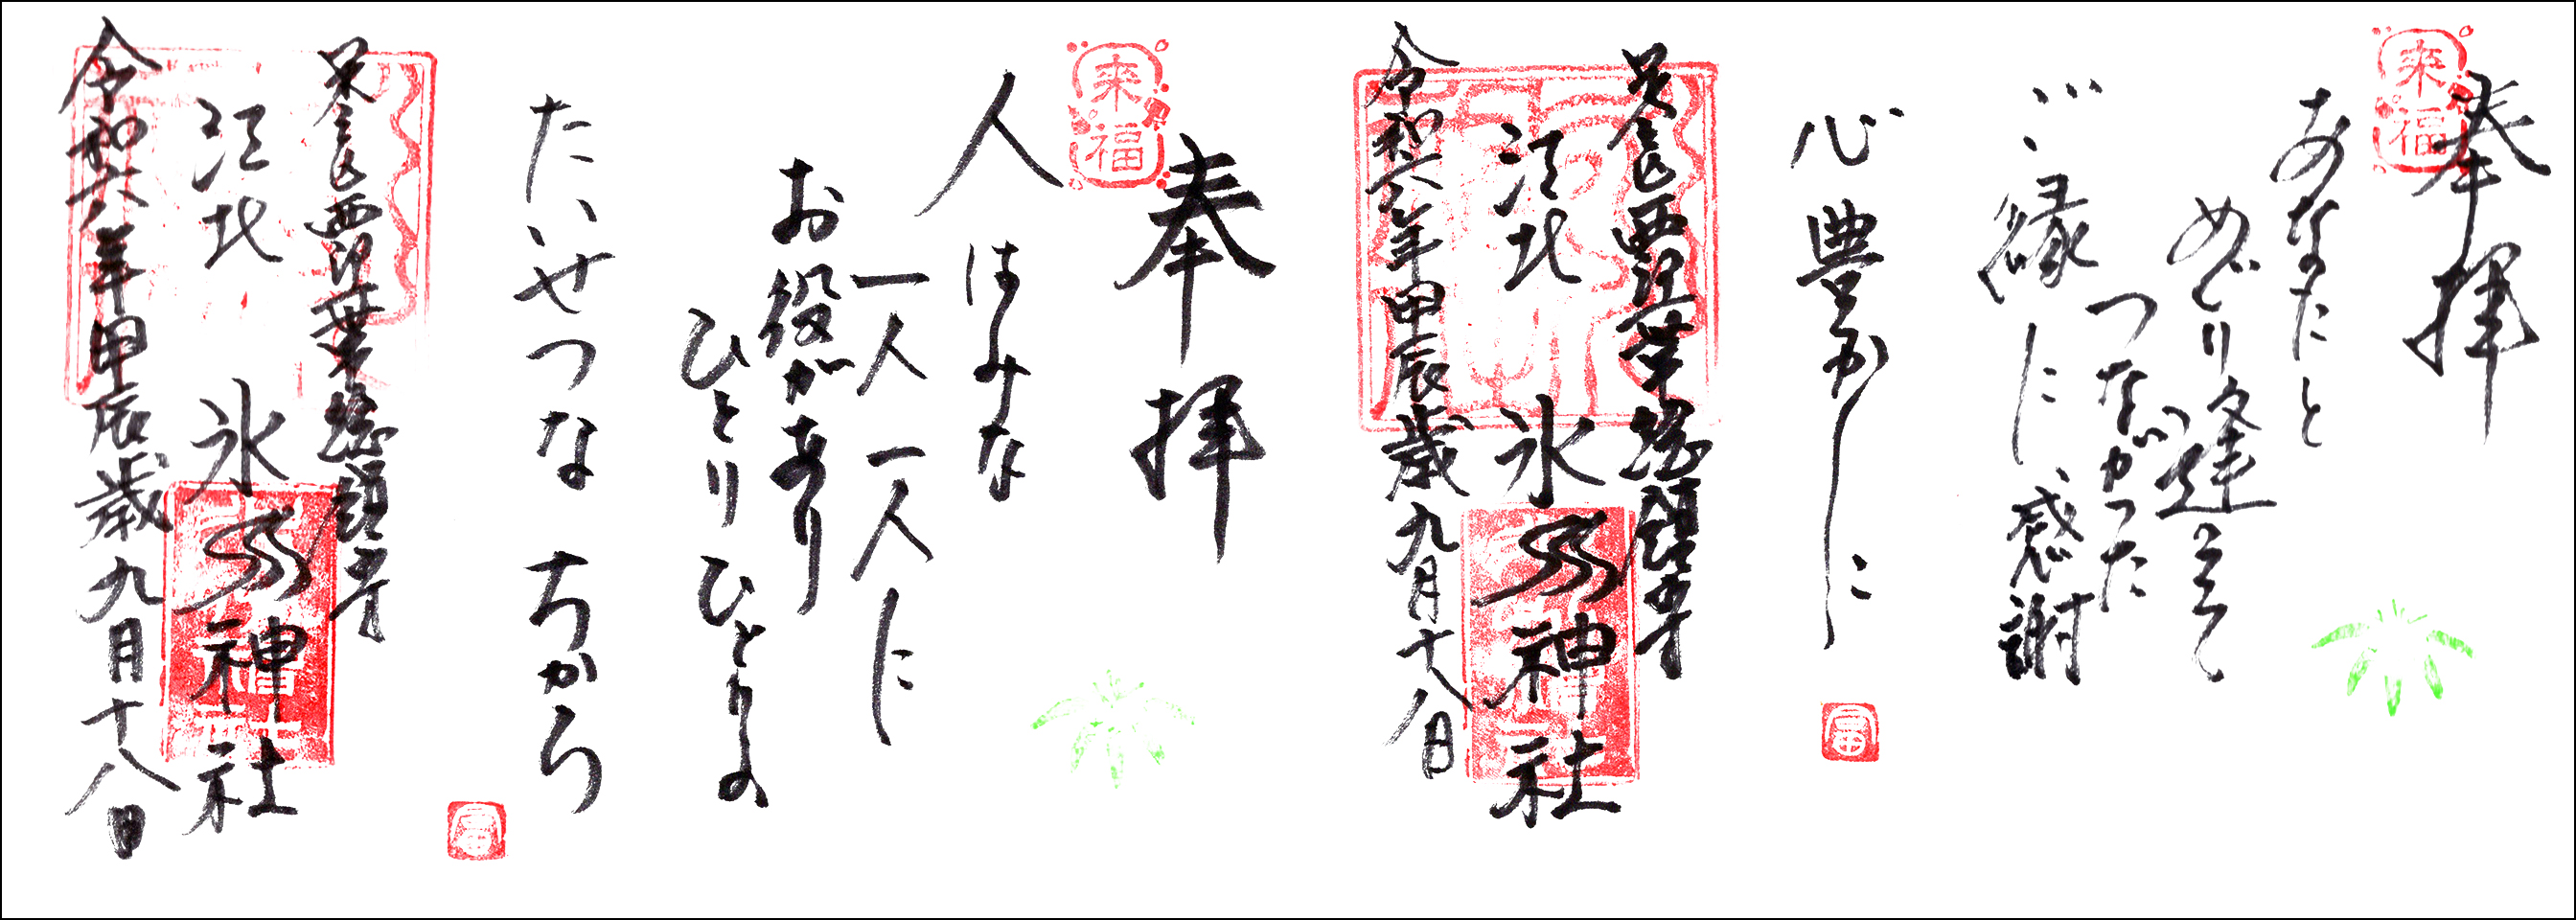 来福
奉拝
あなたと
めぐり逢えて
つながった
ご縁に感謝
心豊かに
足立区西新井栄町総鎮守
江北 氷川神社
令和六年甲辰歳九月十八日
来福
奉拝
人はみな
一人一人に
お役があり
ひとりひとりの
たいせつな ちから
足立区西新井栄町総鎮守
江北 氷川神社
令和六年甲辰歳九月十八日